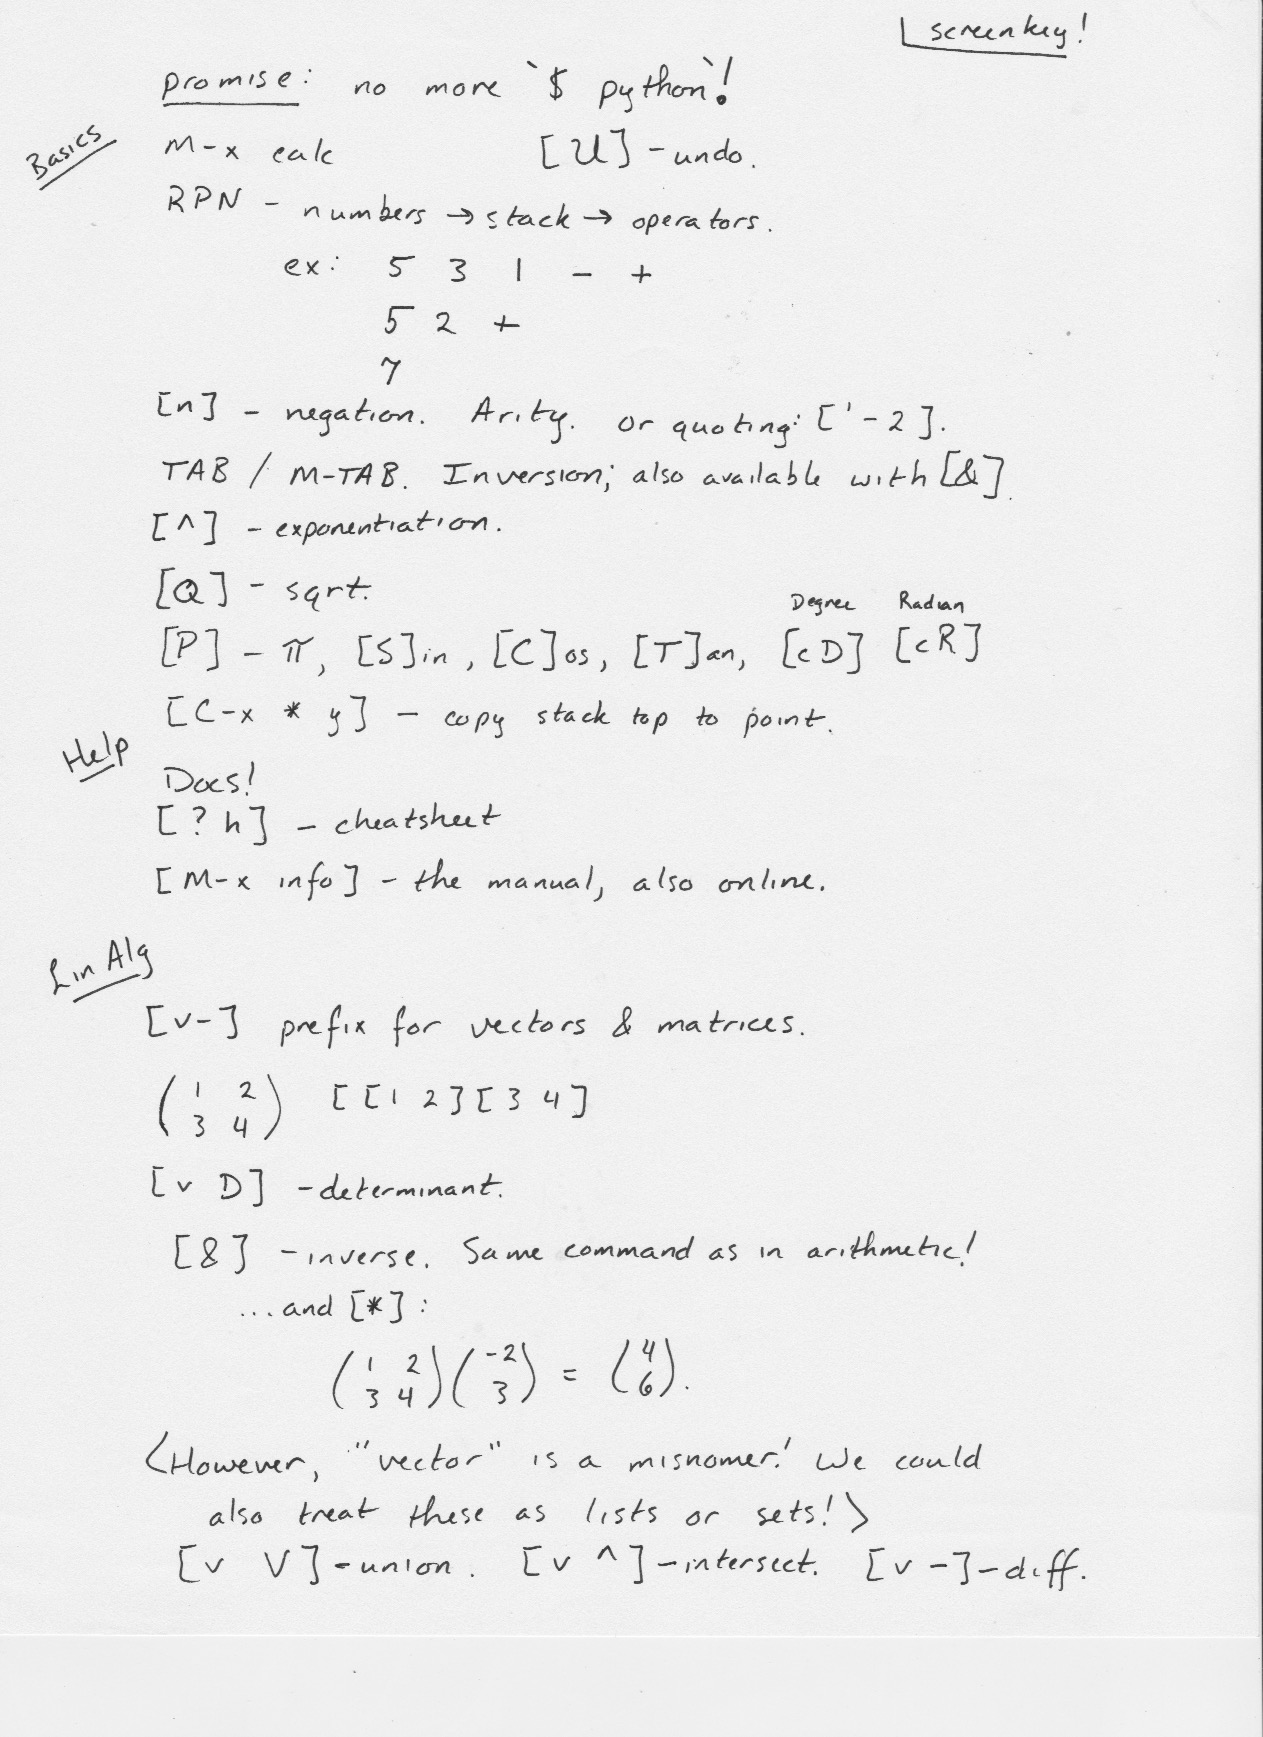 screenkey!
promise: no more `$ python`!
Basics
M-x calc [U] - undo.
RPN - numbers → stack → operators.
ex: 5 3 1 - +
5 2 +
7
[n] - negation. Arity. or quoting: ['-2].
TAB / M-TAB. Inversion; also available with [&].
[^] - exponentiation.
[Q] - sqrt.
Degree Radian
[P] - π, [S]in, [C]os, [T]an, [cD] [cR]
[C-x * y] - copy stack top to point.
Help
Docs!
[? h] - cheatsheet
[M-x info] - the manual, also online.
Lin Alg
[v-] prefix for vectors & matrices.
(1 2
3 4) [[1 2][3 4]
[v D] - determinant.
[&] - inverse. Same command as in arithmetic!
...and [*]:
(1 2
3 4)(-2
3) = (4
6).
<However, "vector" is a misnomer! We could
also treat these as lists or sets!>
[v V] - union. [v ^] - intersect. [v -] - diff.